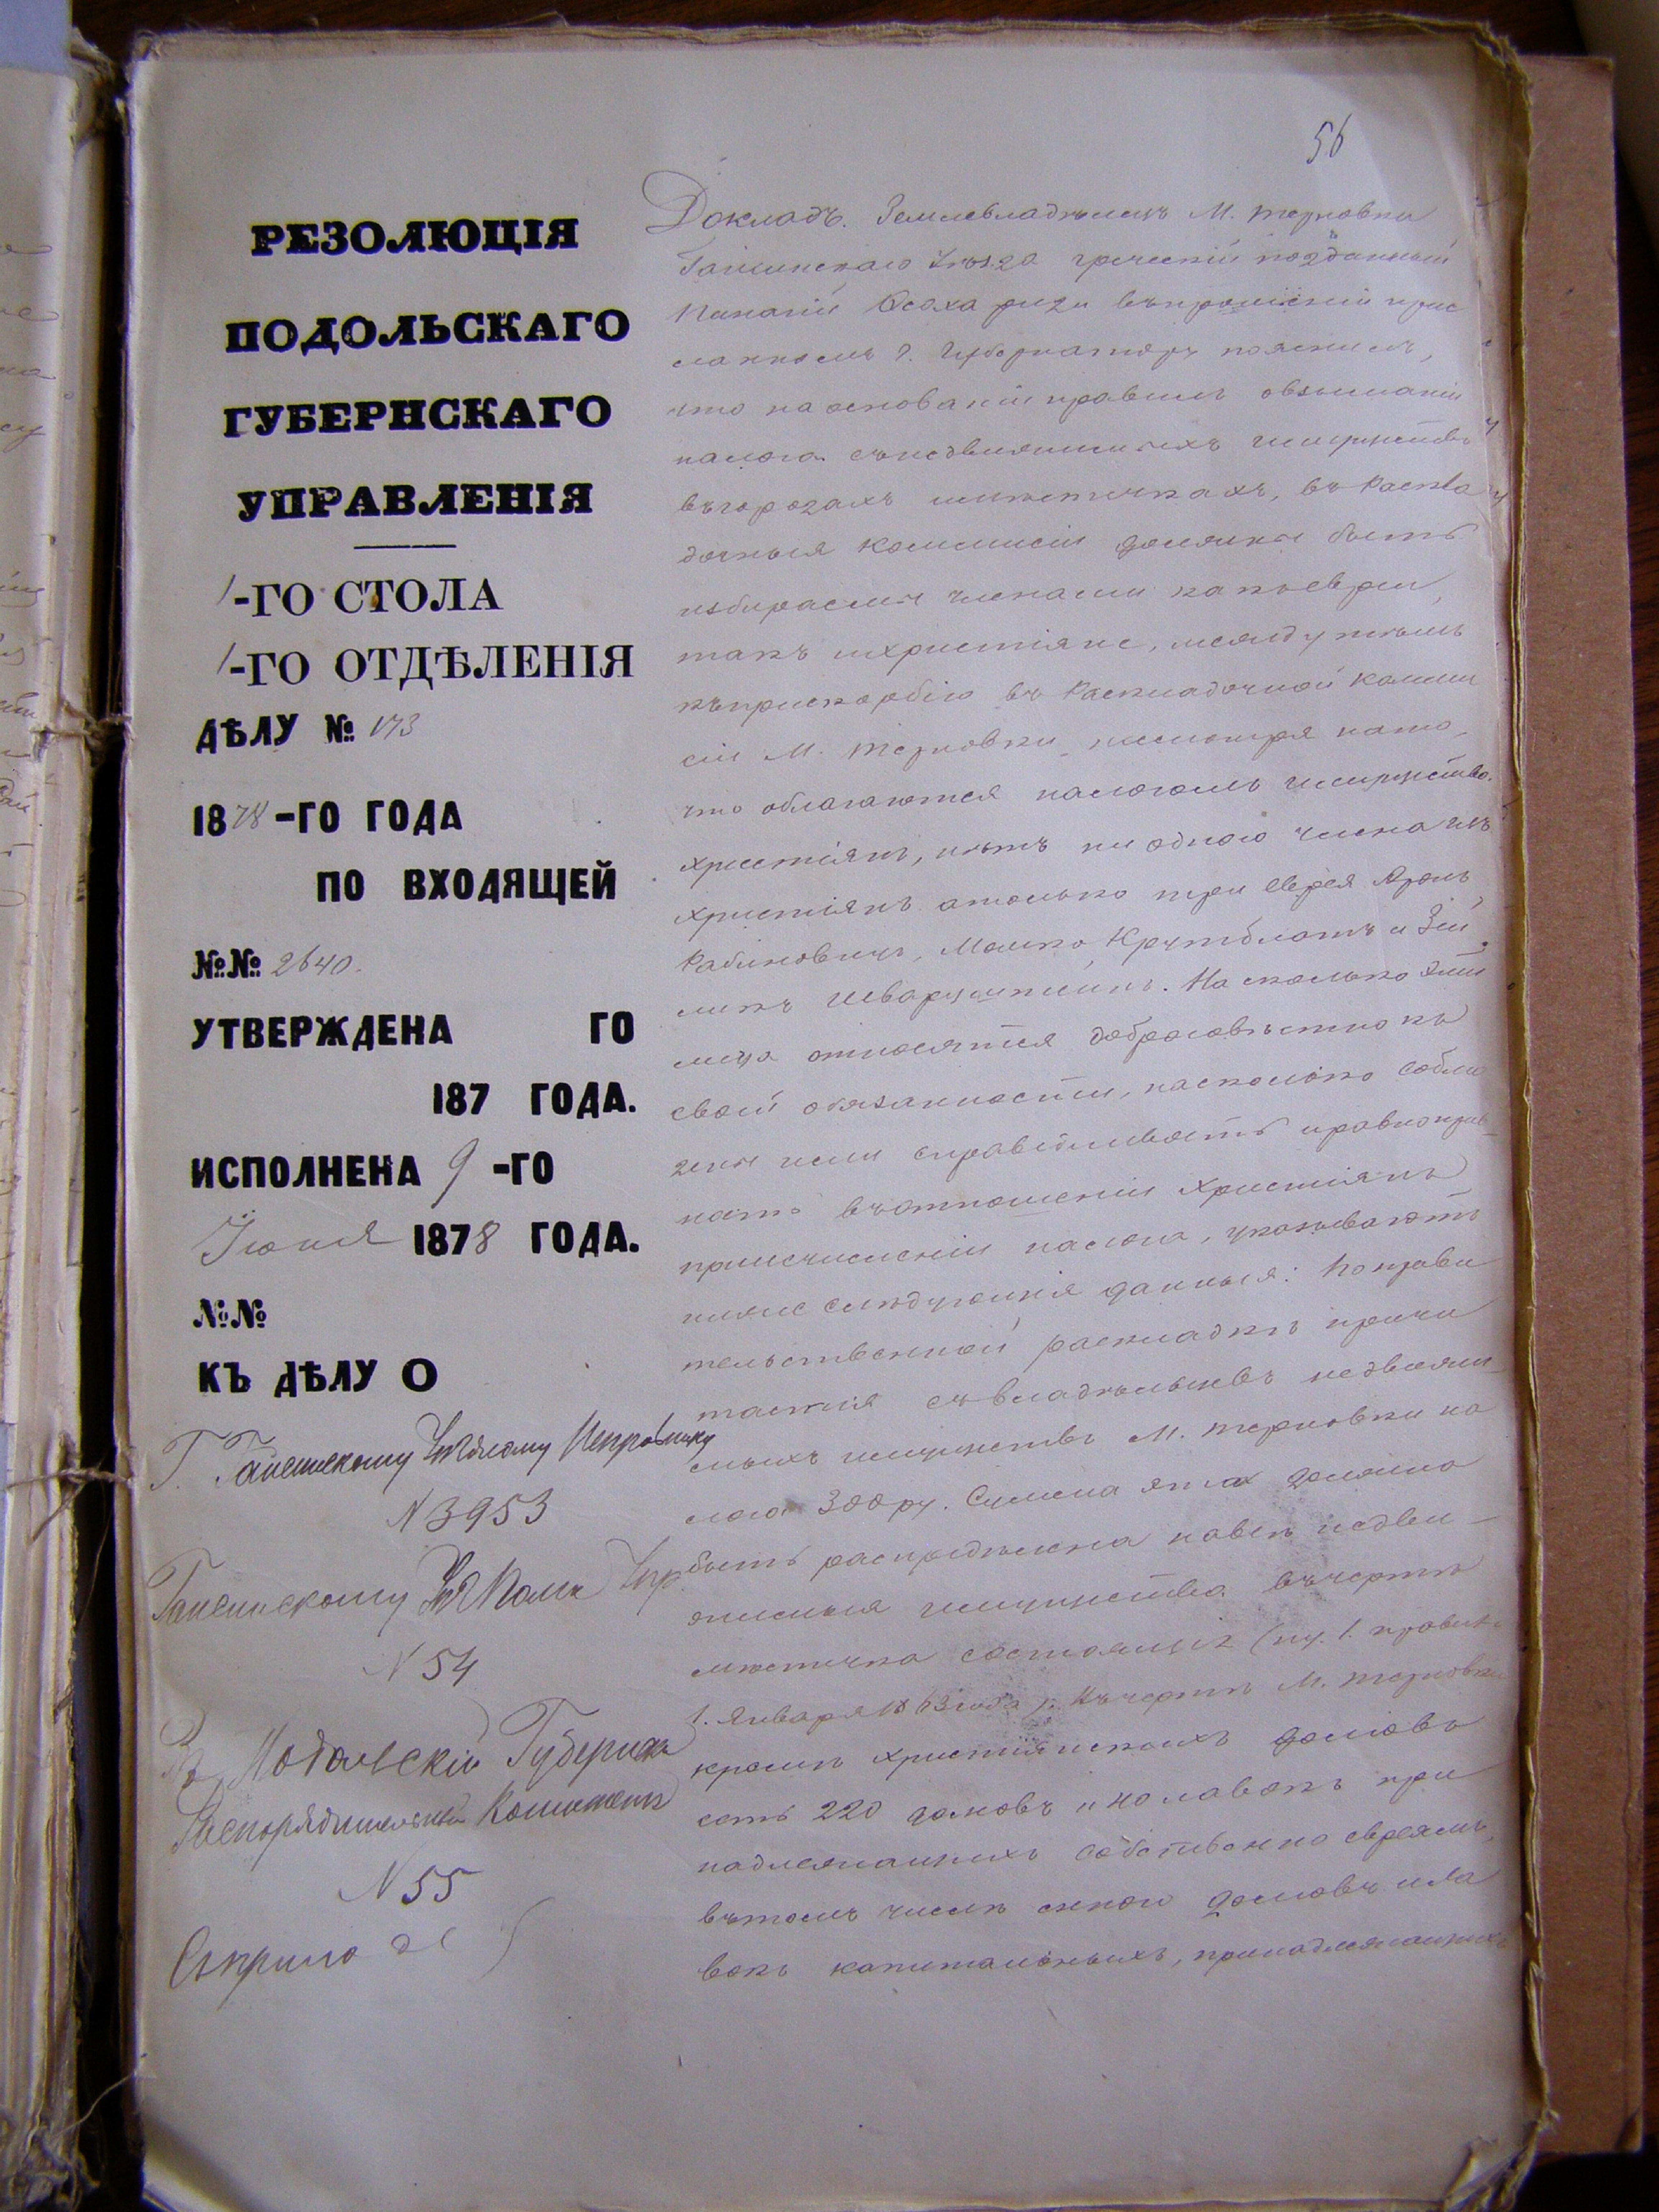 56
РЕЗОЛЮЦІЯ
ПОДОЛЬСКАГО
ГУБЕРНСКАГО
УПРАВЛЕНІЯ
1-ГО СТОЛА
1-ГО ОТДѢЛЕНІЯ
ДѢЛУ № 173
1878-ГО ГОДА
ПО ВХОДЯЩЕЙ
№№ 2640.
УТВЕРЖДЕНА ГО
187 ГОДА.
ИСПОЛНЕНА 9-ГО
Іюня 1878 ГОДА.
№№
КЪ ДѢЛУ О
Г. Гайсинскому Уѣздному Исправнику
N 3953
Гайсинскому
N 54
Въ Подольскій Губернск
Распорядительный Комитетъ
N 55
Докладъ. Землевладѣлецъ М. Терновки
Гайсинскаго Уѣзда греческій подданный
въ прошеніи прис
ланномъ Г. Губернатору пояснилъ,
что на основаніи правилъ о взиманіи
налога съ недвижимыхъ имуществъ
въ городахъ и мѣстечкахъ, въ Раскла
дочныя Коммисіи должны быть
избираемы членами какъ евреи,
такъ и христіяне, между тѣмъ
къ прискорбію въ Раскладочной Комми
сіи М. Терновки, несмотря на то,
что облагаются налогомъ имущества
христіянъ, нѣтъ ни одного члена изъ
христіянъ а только три еврея Аронъ
Рабиновичъ, Мошко Крутблатъ и Зей
ликъ Шварцштейнъ. На сколько эти
лица относятся добросовѣстно къ
своей обязанности, насколько соблю
дены ими справедливость и равноправ
ность въ отношеніи Христіянъ
при исчисленіи налога, указываютъ
ниже слѣдующія данныя: По прави
тельственной раскладкѣ причи
тается съ владѣльцевъ недвижи
мыхъ имуществъ М. Терновки на
лога 300 ру. Сумма эта должна
быть распредѣлена на всѣ недви-
жимыя имущества въ чертѣ
мѣстечка состоящія (пу. 1. правилъ
1. Января 1863 года). Въ чертѣ М. Терновки
кромѣ христіянскихъ домовъ
есть 220 домовъ и 40 лавокъ при
надлежащихъ собственно евреямъ,
въ томъ числѣ домовъ и ла
вокъ капитальныхъ, принадлежащихъ